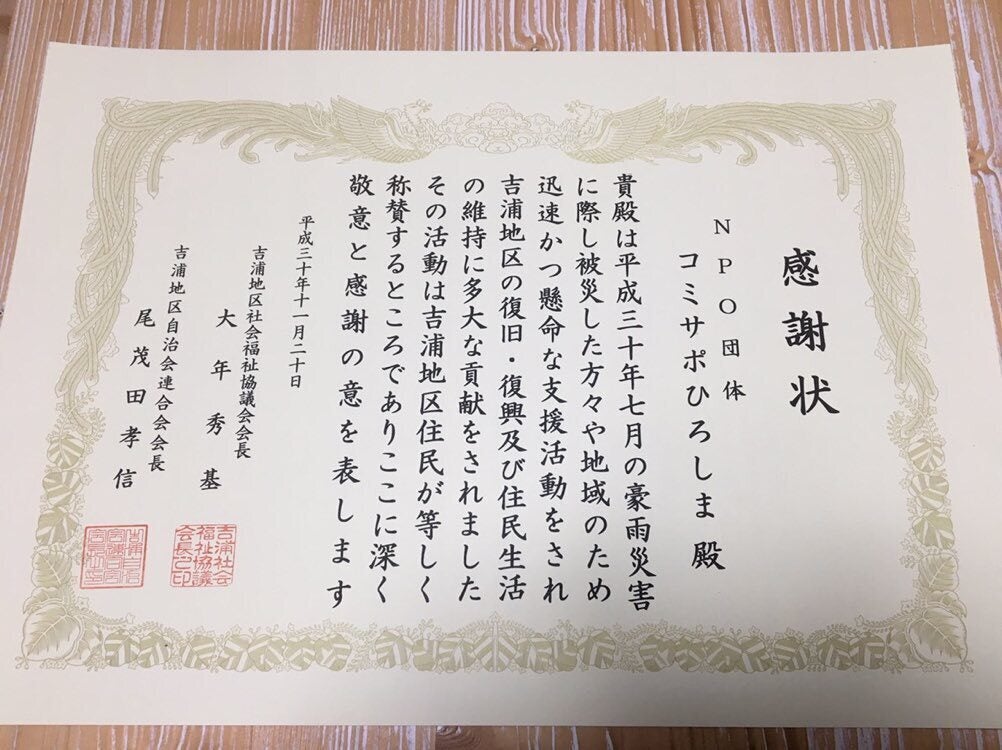 感謝状
NPO団体
コミサポひろしま 殿
貴殿は平成三十年七月の豪雨災害
に際し被災した方々や地域のため
迅速かつ懸命な支援活動をされ
吉浦地区の復旧・復興及び住民生活
の維持に多大な貢献をされました
その活動は吉浦地区住民が等しく
称賛するところでありここに深く
敬意と感謝の意を表します
平成三十年十一月二十日
吉浦地区社会福祉協議会会長
大年秀基
吉浦地区自治会連合会会長
尾茂田孝信
吉浦社会
福祉協議
会長之印